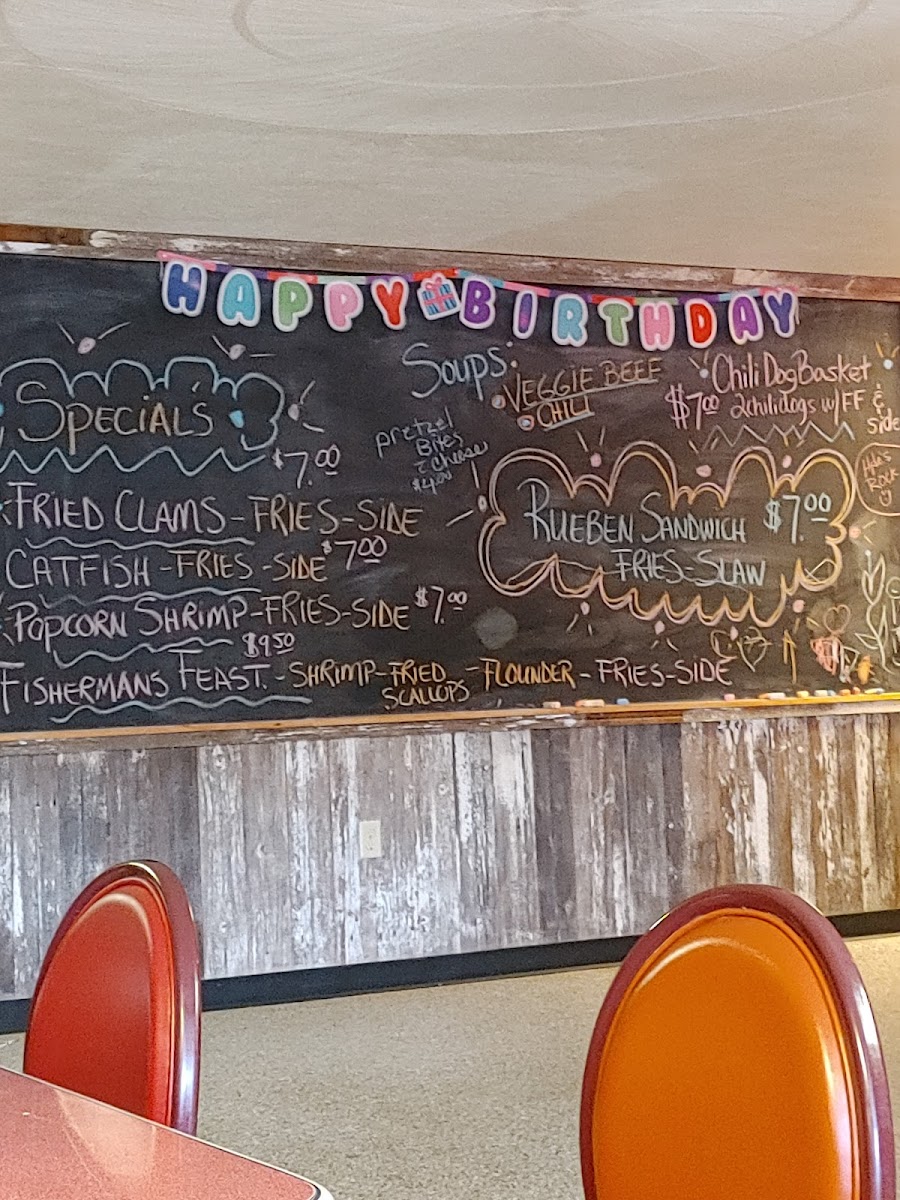 HAPPY BIRTHDAY
SPECIAL'S
$7.00
FRIED CLAMS - FRIES - SIDE
CATFISH - FRIES - SIDE $7.00
POPCORN SHRIMP - FRIES - SIDE $7.00
$9.50
FISHERMANS FEAST. - SHRIMP - FRIED SCALLOPS - FLOUNDER - FRIES - SIDE
Soups:
VEGGIE BEEF
CHILI
Pretzel
Bites
Cheese
$4.00
Chili Dog Basket
$7.00 2 chili dogs w/ FF &
side
RUEBEN SANDWICH $7.00
FRIES - SLAW
ROCK